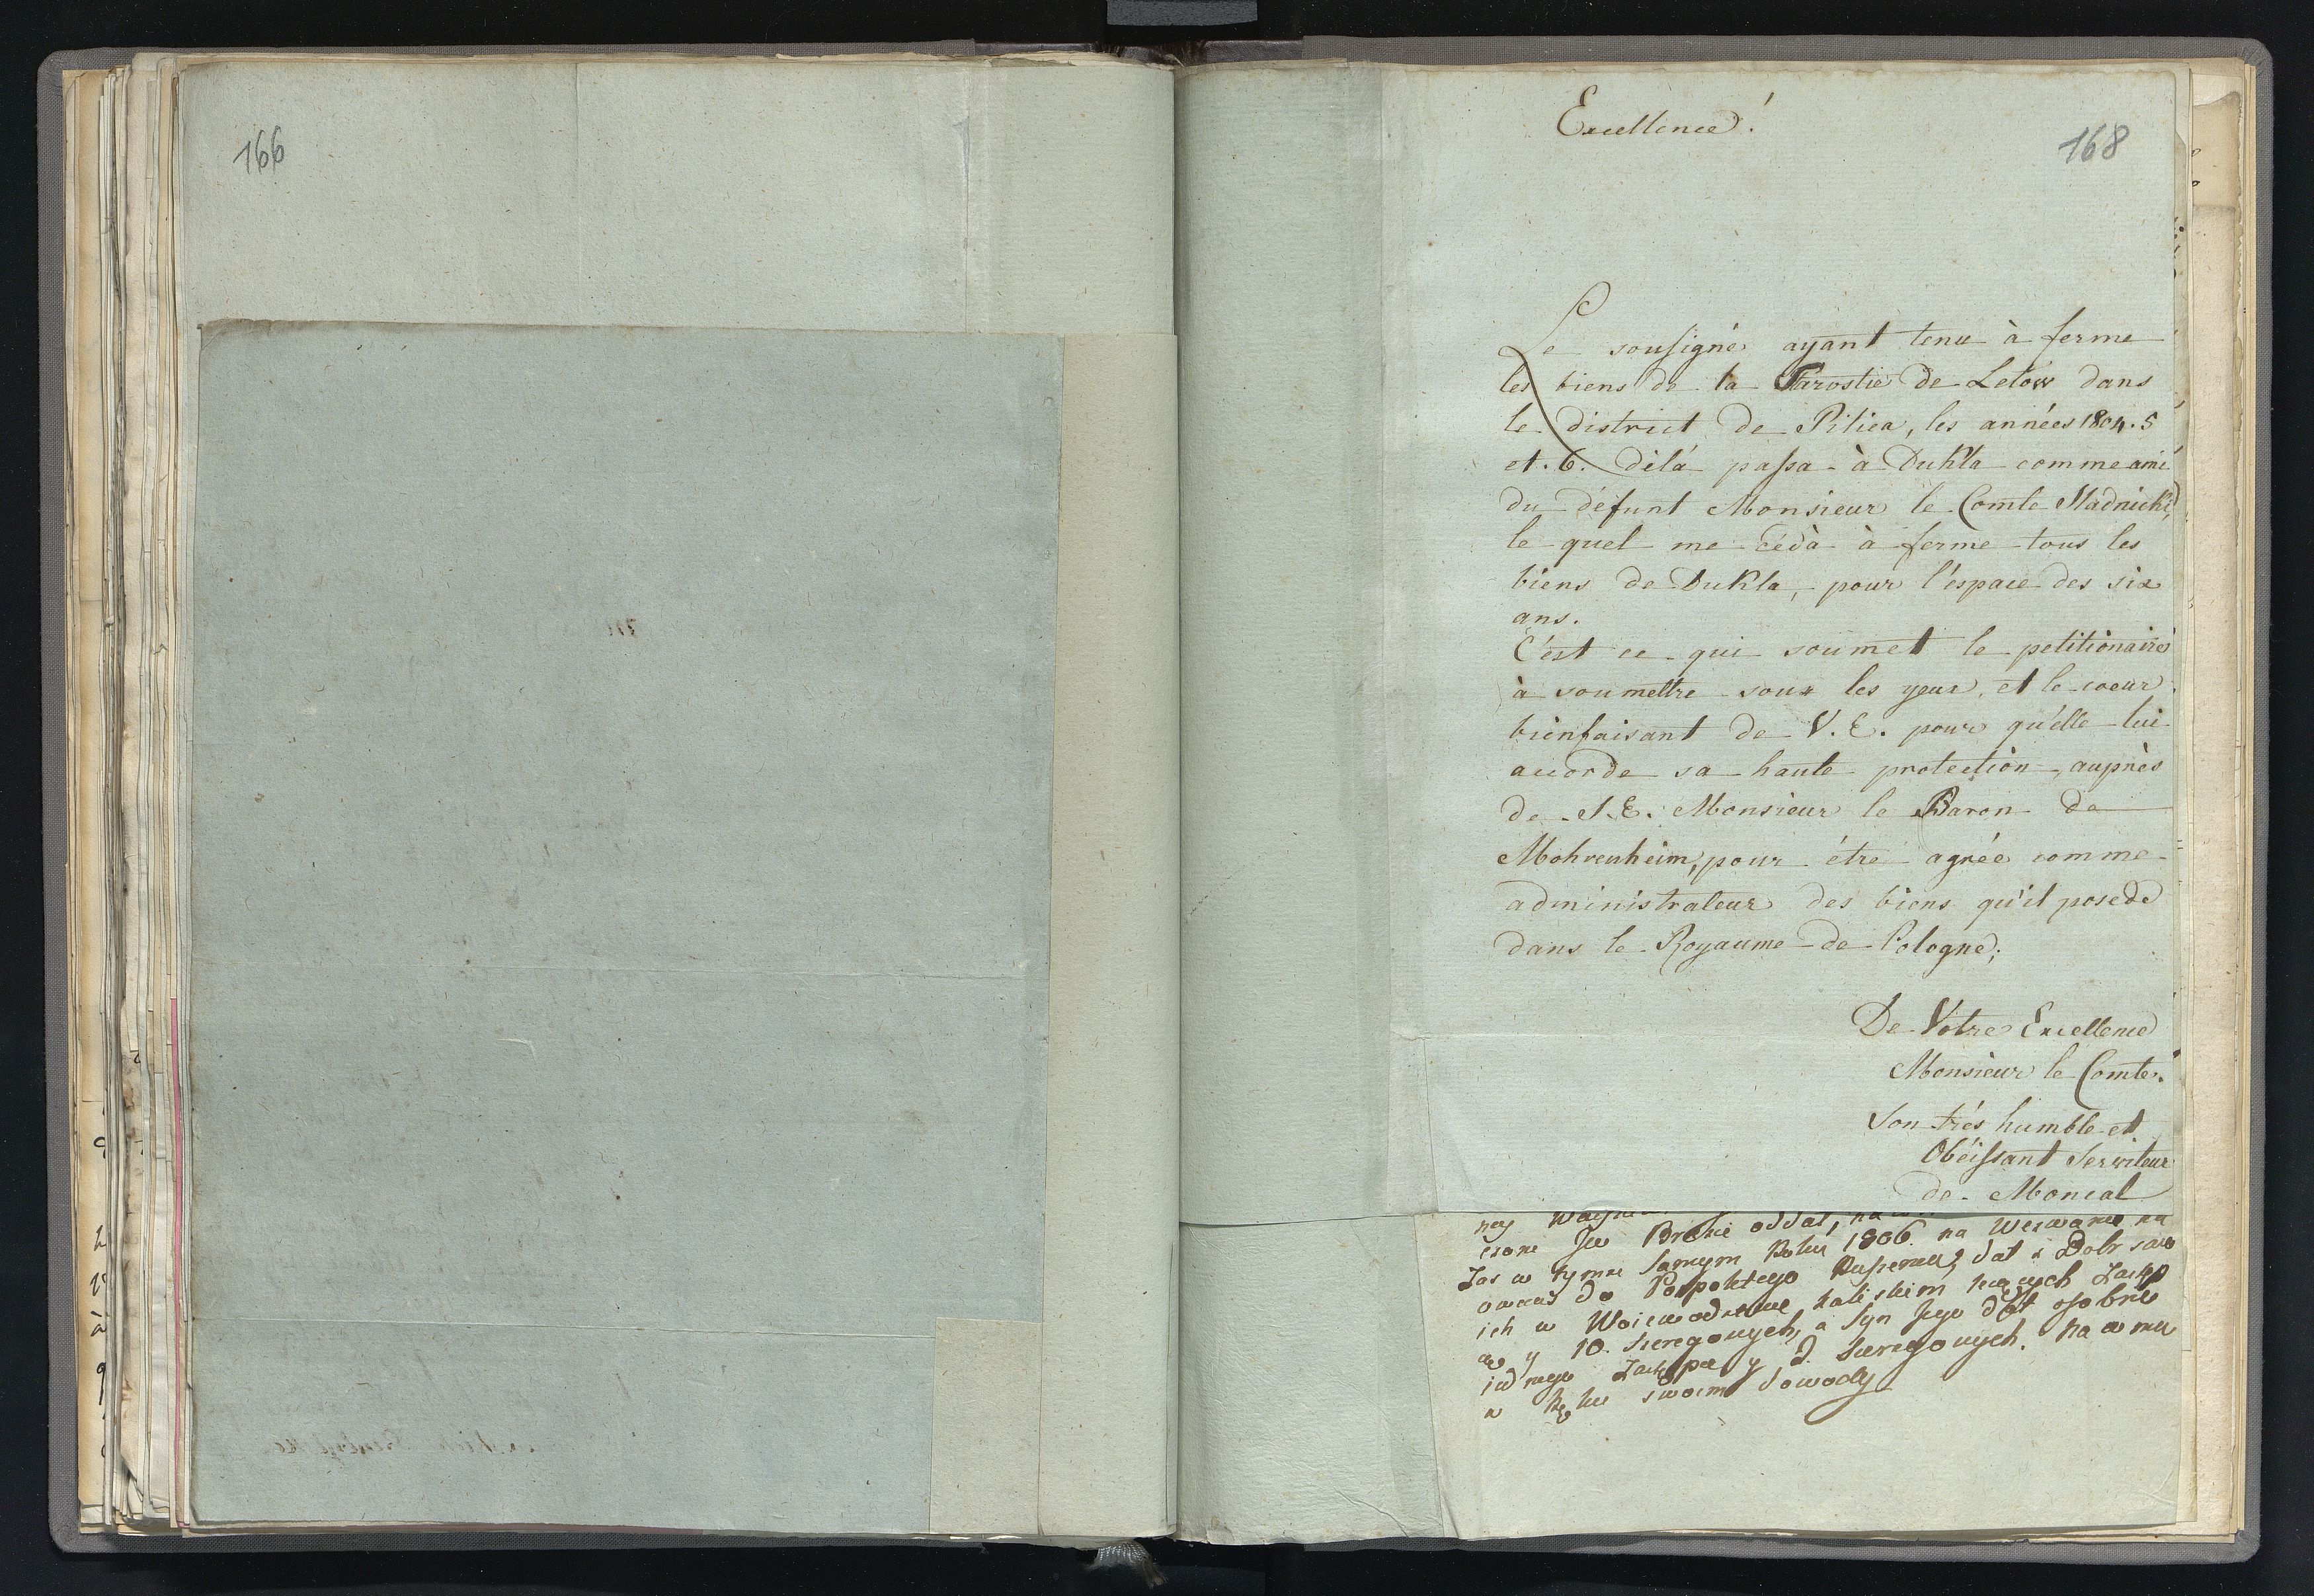 166
168
Excellence!
Le sousigné ayant tenu à ferme
les biens de la Starostie de Lelów dans
le district de Pilica, les années 1804. 5
et. 6. délá passa à Dukla comme ami
du défunt Monsieur le Comte Stadnicki,
le quel me cédà à ferme tous les
biens de Dukla, pour l'éspace des six
ans.
C'ést ce qui soumet le petitionaire
à soumettre sous les yeux, et le coeur
bienfaisant de V. E. pour qu'elle lui
accorde sa haute protection, auprès
de S. E. Monsieur le Baron de
Mohrenheim, pour étre agrée comme
administrateur des biens qu'il posede
dans le Royaume de Pologne;
De Votre Excellence
Monsieur le Comte.
Son trés humble et
Obéissant Serviteur
de Moncal
oddat,
Zas w tymze Samym Roku 1806. na Wezwanie na
do Pospolitego Ruszenia, dat z Dobr swo
ich w Woiewodztwie Kaliskim
y 10. szeregowych, a Syn Jego dat osobno
y 2. szeregowych. na o mu
w Ręku swoim dowody